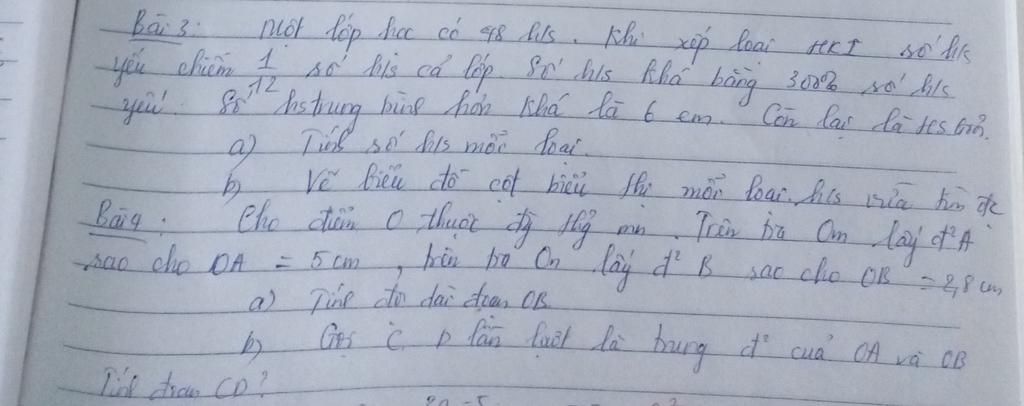 Bài 3: Một lớp học có 48 h/s. Khi xếp loại HKI số h/s
yếu chiếm 1/12 số h/s cả lớp. Số h/s khá bằng 300% số h/s
yếu. Số hs trung bình hơn khá là 6 em. Còn lại là HS giỏi.
a) Tính số h/s mỗi loại.
b) Vẽ biểu đồ cột biểu thị mỗi loại h/s vừa tìm đc
Bài 4: Cho điểm O thuộc đg thg mn. Trên tia Om lấy đ² A
sao cho OA = 5 cm, trên tia On lấy đ² B sao cho OB = 2,8 cm
a) Tính độ dài đoạn OB
b) Gọi C D lần lượt là trung đ² của OA và OB
Tính đoạn CD?